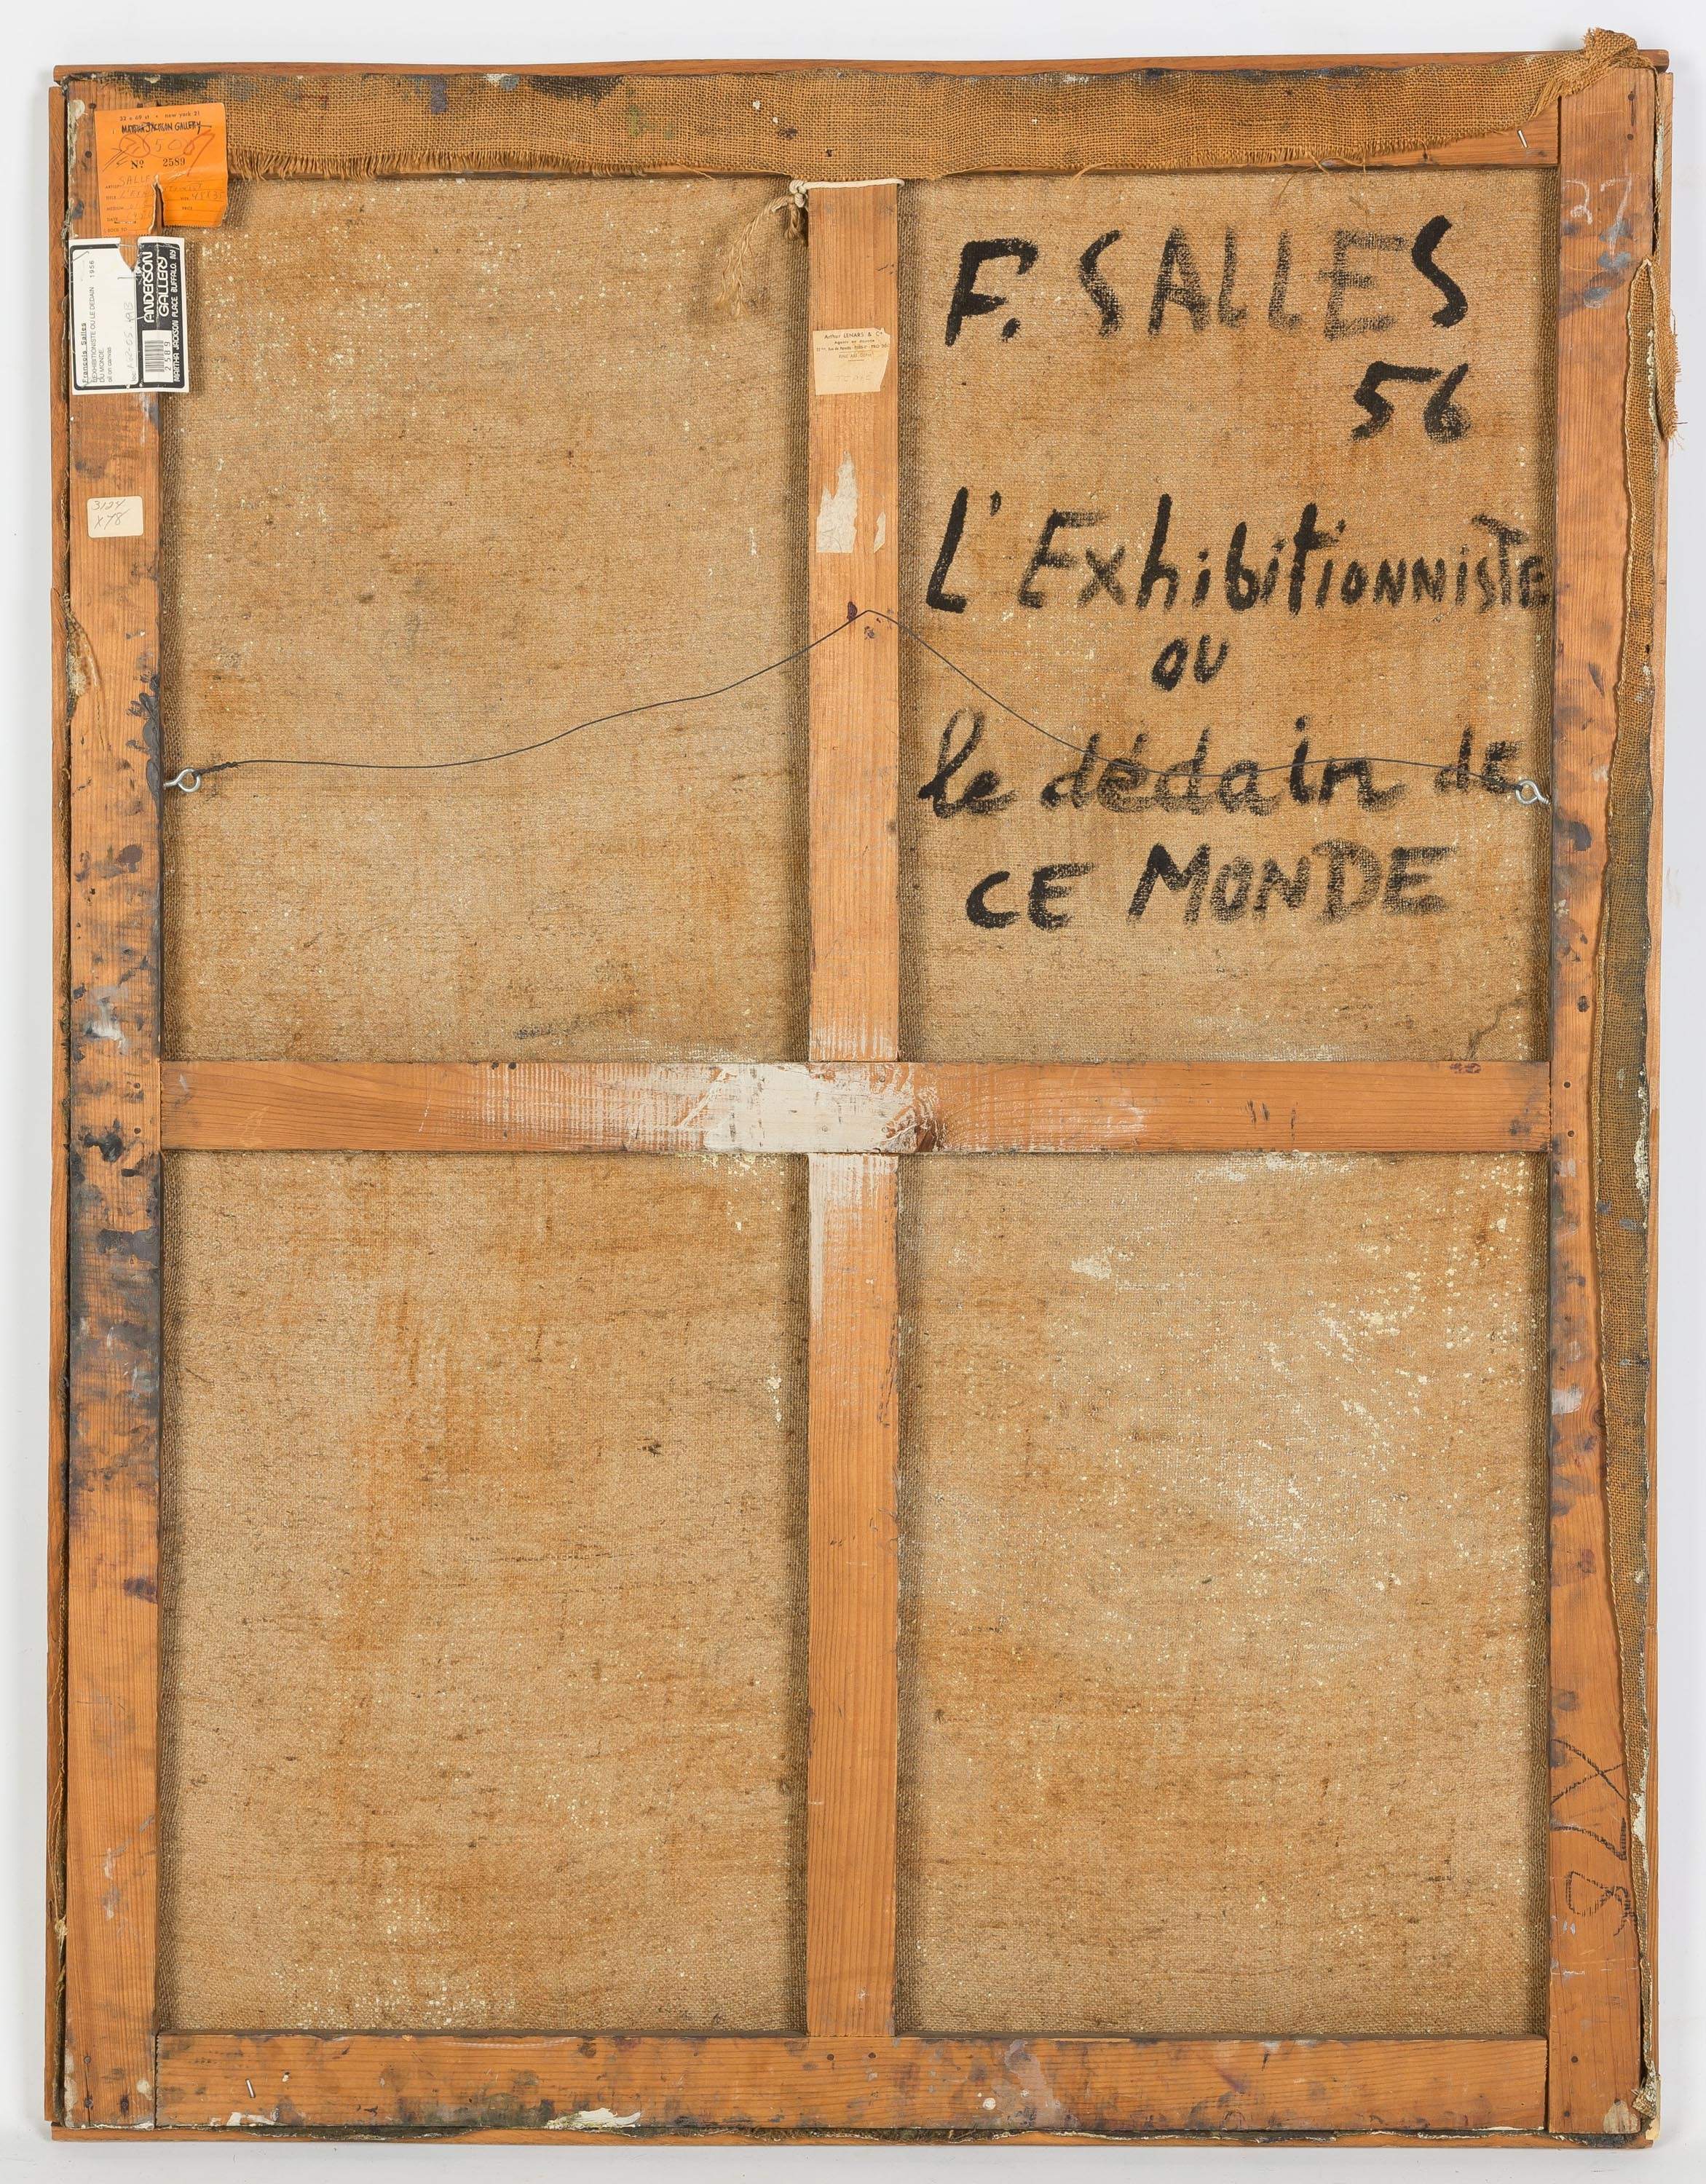 32 e 69 st • new york 21
MARTHA JACKSON GALLERY
Nº 2589
SALLE
Francois Salles
L'EXHIBITIONISTE OU LE DEDAIN 1956
DU MONDE
oil on canvas
2589
ANDERSON
GALLERY
MARTHA JACKSON PLACE BUFFALO, NY
3124
X78
Arthur LENARS & Cie
27
F. SALLES
56
L'Exhibitionniste
ou
le dédain de
CE MONDE
X78